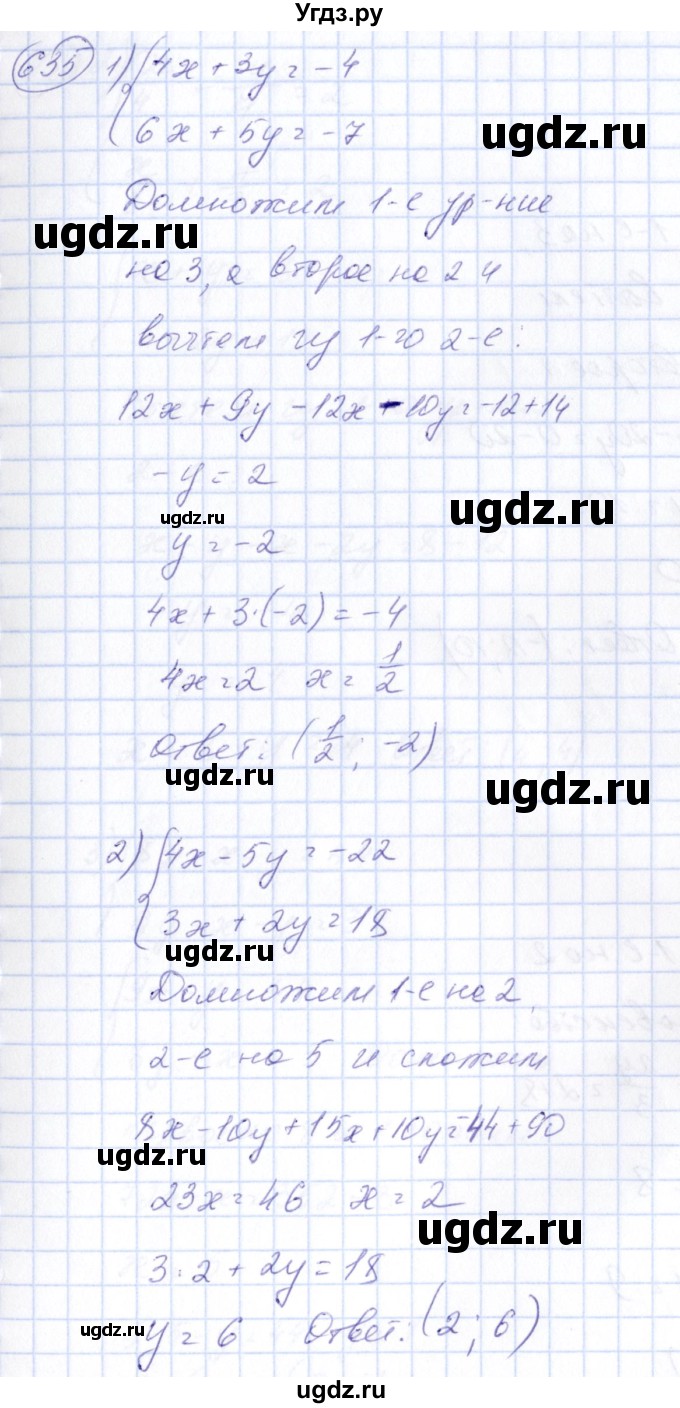 Угдз.ру
635 1) { 4x + 3y = -4
6x + 5y = -7
ugdz.ru
Домножим 1-е ур-ние
ugdz.ru
на 3, а второе на 2 и
вычтем из 1-го 2-е:
12x + 9y - 12x - 10y = -12 + 14
-y = 2
ugdz.ru
ugdz.ru
y = -2
4x + 3·(-2) = -4
4x = 2   x = 1/2
Ответ: (1/2; -2)
ugdz.ru
ugdz.ru
2) { 4x - 5y = -22
3x + 2y = 18
ugdz.ru
Домножим 1-е на 2,
2-е на 5 и сложим
8x - 10y + 15x + 10y = -44 + 90
ugdz.ru
23x = 46   x = 2
ugdz.ru
3·2 + 2y = 18
ugdz.ru
y = 6   Ответ: (2; 6)
ugdz.ru